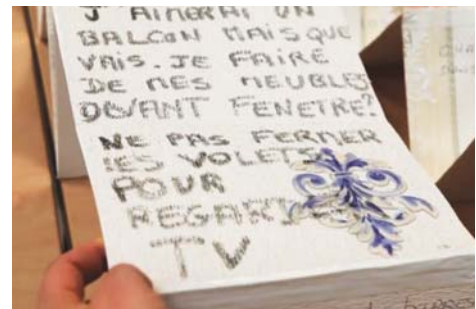 J'AIMERAI UN
BALCON MAIS QUE
VAIS.JE FAIRE
DE MES MEUBLES
DEVANT FENETRE?
NE PAS FERMER
LES VOLETS
POUR
REGARDER
TV